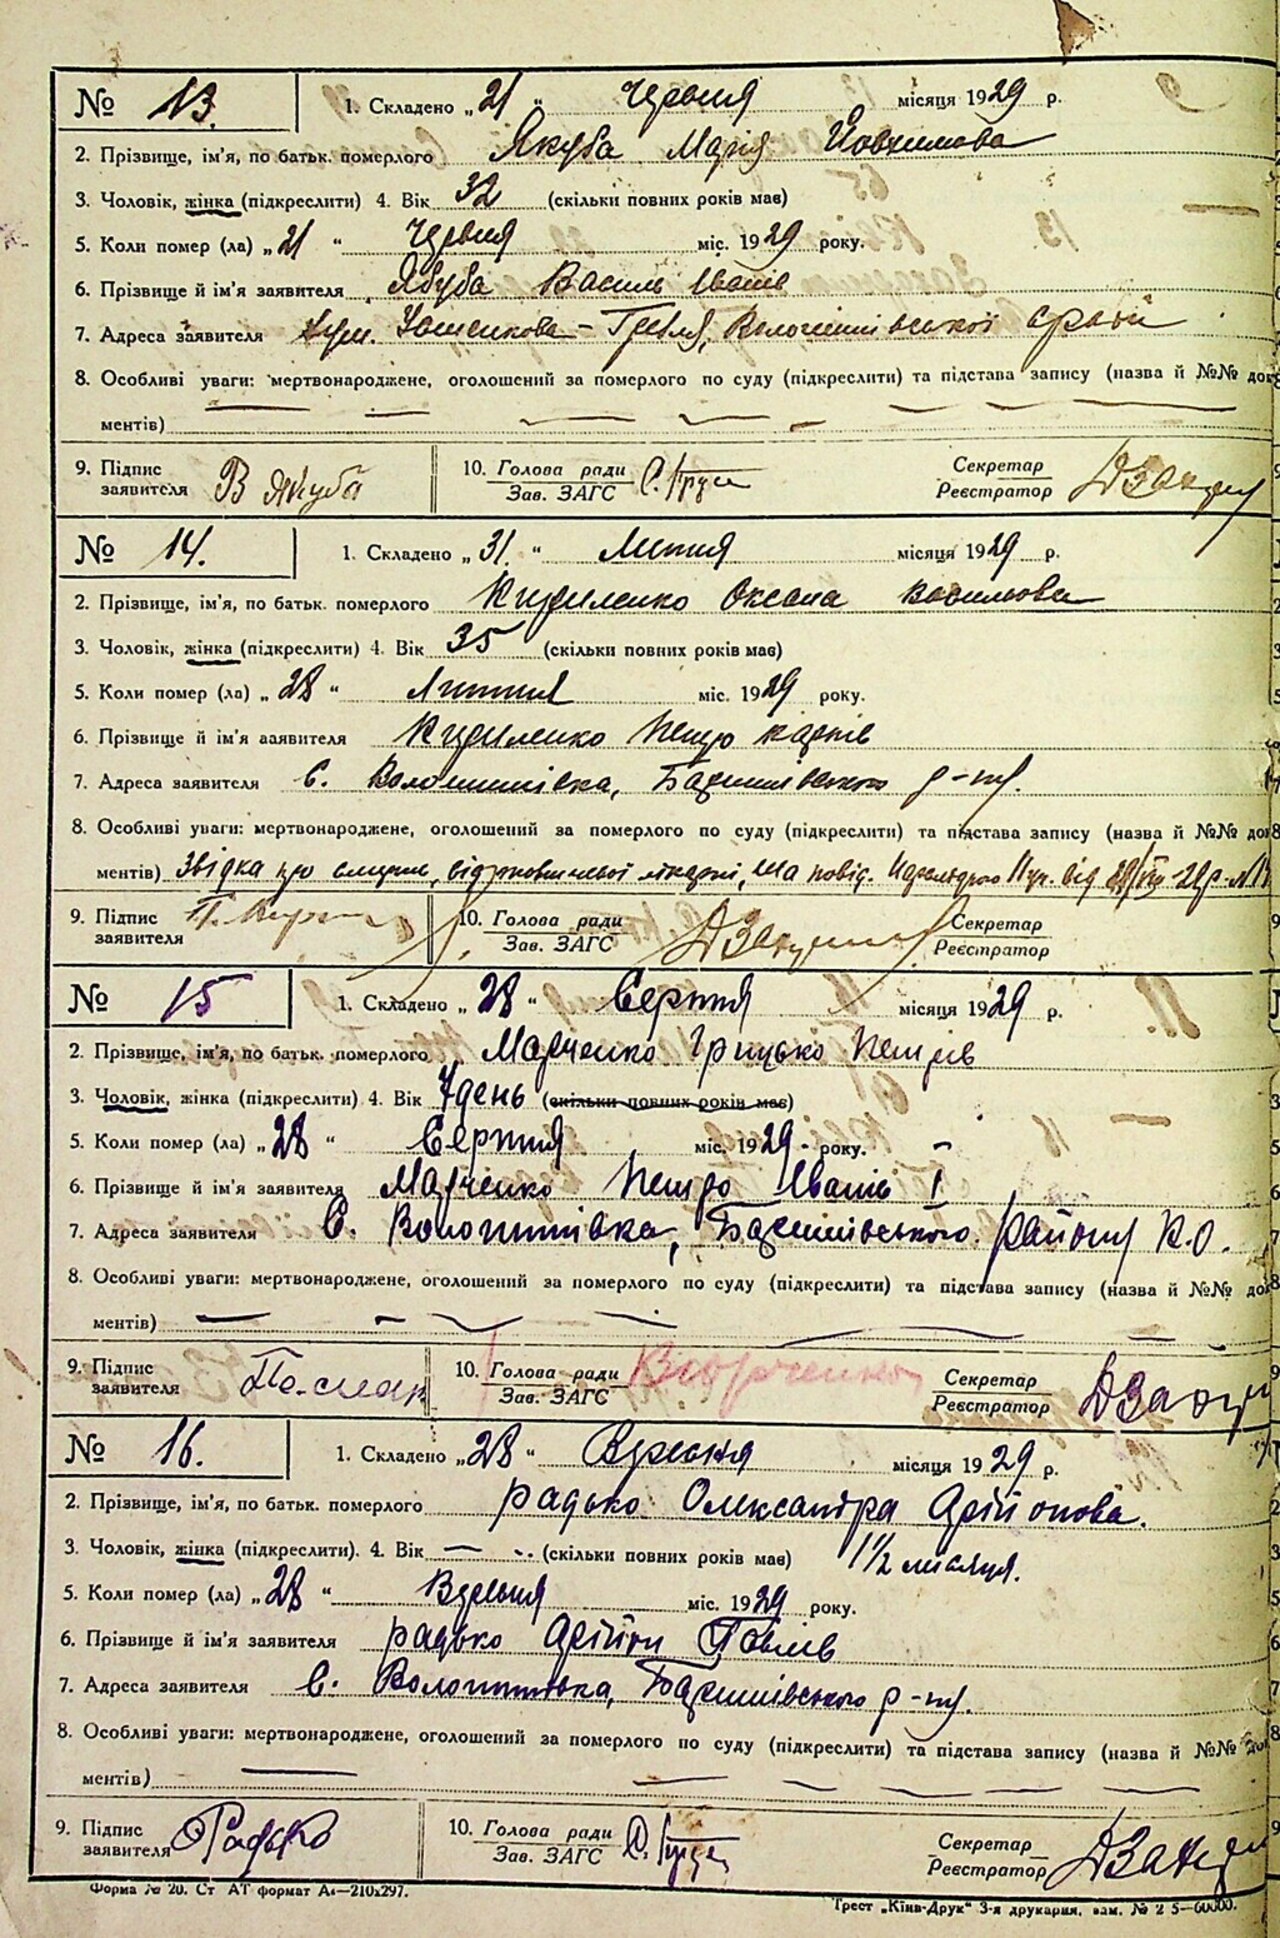 № 13. 1. Складено „21“ Червня місяця 1929 р.
2. Прізвище, ім'я, по батьк. померлого Якуба Марія Йовхимова
3. Чоловік, жінка (підкреслити) 4. Вік 32 (скільки повних років має)
5. Коли помер (ла) „21“ Червня міс. 1929 року.
6. Прізвище й ім'я заявителя Якуба Василь Іванів
7. Адреса заявителя Гребля,
8. Особливі уваги: мертвонароджене, оголошений за померлого по суду (підкреслити) та підстава запису (назва й №№ док
ментів)
9. Підпис заявителя В Якуба 10. Голова ради Зав. ЗАГС Секретар Реєстратор
№ 14. 1. Складено „31.“ Липня місяця 1929 р.
2. Прізвище, ім'я, по батьк. померлого Кириленко Оксана Васильова
3. Чоловік, жінка (підкреслити) 4. Вік 35 (скільки повних років має)
5. Коли помер (ла) „28“ Липня міс. 1929 року.
6. Прізвище й ім'я заявителя Кириленко Петро Карпів
7. Адреса заявителя С. Волошинівка, Баришівського р-ну.
8. Особливі уваги: мертвонароджене, оголошений за померлого по суду (підкреслити) та підстава запису (назва й №№ док
ментів) Звідка про смерть, лікарні, від
9. Підпис заявителя 10. Голова ради Зав. ЗАГС Секретар Реєстратор
№ 15 1. Складено „28“ Серпня місяця 1929 р.
2. Прізвище, ім'я, по батьк. померлого Марченко Грицько Петрів
3. Чоловік, жінка (підкреслити) 4. Вік 7 день (скільки повних років має)
5. Коли помер (ла) „28“ Серпня міс. 1929 - року.
6. Прізвище й ім'я заявителя Марченко Петро Іванів I
7. Адреса заявителя С. Волошинівка, Баришівського району К.О.
8. Особливі уваги: мертвонароджене, оголошений за померлого по суду (підкреслити) та підстава запису (назва й №№ док
ментів)
9. Підпис заявителя 10. Голова ради Зав. ЗАГС Секретар Реєстратор
№ 16. 1. Складено „28“ Вресня місяця 1929 р.
2. Прізвище, ім'я, по батьк. померлого Радько Олександра
3. Чоловік, жінка (підкреслити). 4. Вік — (скільки повних років має) 1½ місяця.
5. Коли помер (ла) „28“ Вресня міс. 1929 року.
6. Прізвище й ім'я заявителя Радько Павлів
7. Адреса заявителя С. Волошинівка, Баришівського р-ну.
8. Особливі уваги: мертвонароджене, оголошений за померлого по суду (підкреслити) та підстава запису (назва й №№ док
ментів)
9. Підпис заявителя Радько 10. Голова ради Зав. ЗАГС Секретар Реєстратор
Форма № 20. Ст АТ формат А4—210х297.
Трест „Київ-Друк“ 3-я друкарня, зам. № 2 5—60000.